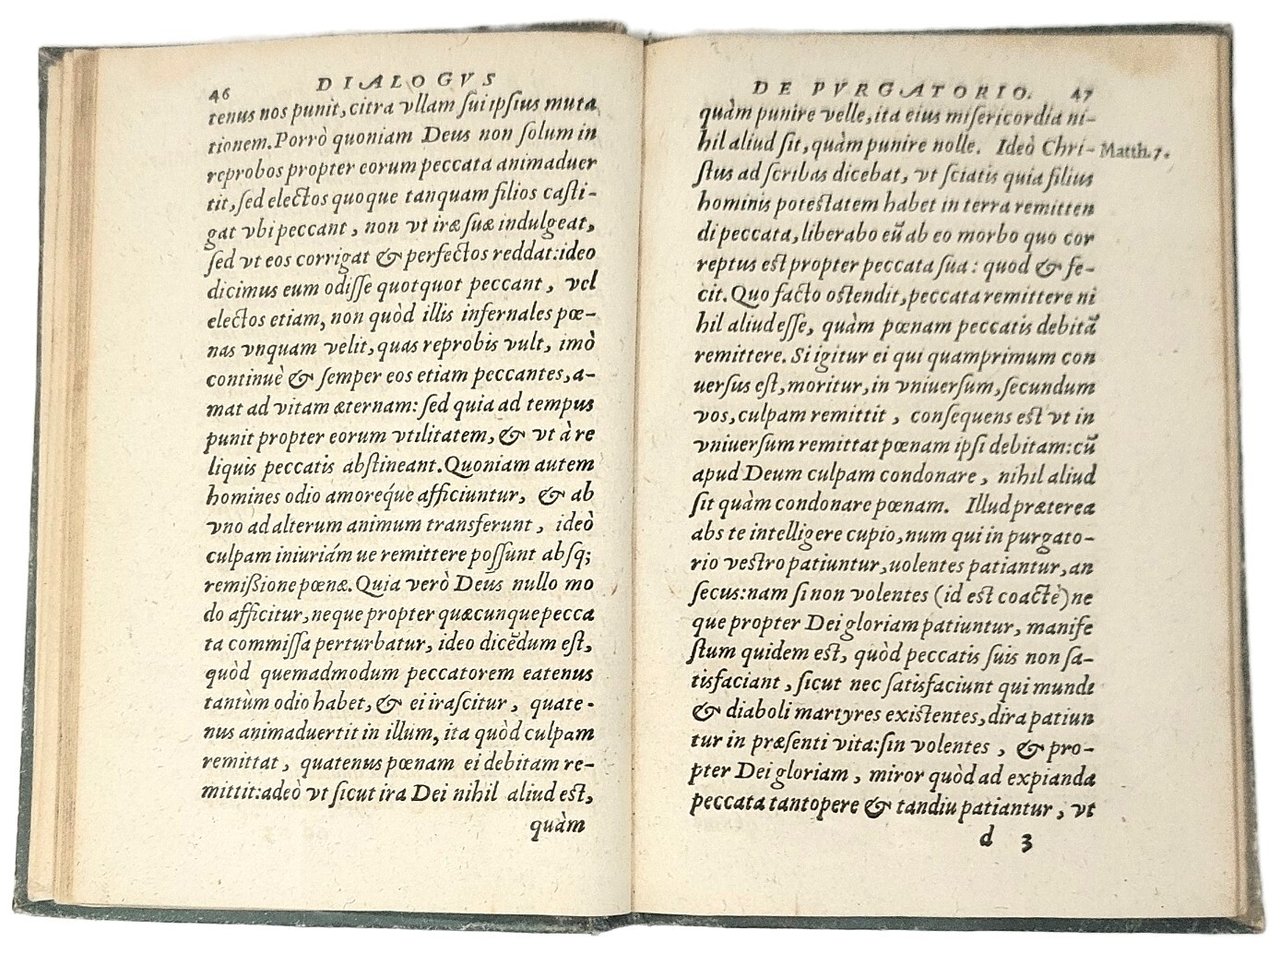 46 DIALOGVS
tenus nos punit, citra vllam ſui ipſius muta
tionem. Porrò quoniam Deus non ſolum in
reprobos propter eorum peccata animaduer
tit, ſed electos quoque tanquam filios caſti-
gat vbi peccant, non vt iræ ſuæ indulgeat,
ſed vt eos corrigat & perfectos reddat: ideo
dicimus eum odiſſe quotquot peccant, vel
electos etiam, non quòd illis infernales pœ-
nas vnquam velit, quas reprobis vult, imò
continuè & ſemper eos etiam peccantes, a-
mat ad vitam æternam: ſed quia ad tempus
punit propter eorum vtilitatem, & vt à re
liquis peccatis abſtineant. Quoniam autem
homines odio amoreq́ue afficiuntur, & ab
vno ad alterum animum transferunt, ideò
culpam iniuriám ue remittere poſſunt abſq;
remißione pœnæ. Quia verò Deus nullo mo
do afficitur, neque propter quæcunque pecca
ta commiſſa perturbatur, ideo dicēdum eſt,
quòd quemadmodum peccatorem eatenus
tantùm odio habet, & ei iraſcitur, quate-
nus animaduertit in illum, ita quòd culpam
remittat, quatenus pœnam ei debitam re-
mittit: adeò vt ſicut ira Dei nihil aliud eſt,
quàm
DE PVRGATORIO. 47
quàm punire velle, ita eius miſericordia ni-
hil aliud ſit, quàm punire nolle. Ideò Chri- Matth. 7.
ſtus ad ſcribas dicebat, vt ſciatis quia filius
hominis poteſtatem habet in terra remitten
di peccata, liberabo eū ab eo morbo quo cor
reptus eſt propter peccata ſua: quod & fe-
cit. Quo facto oſtendit, peccata remittere ni
hil aliud eſſe, quàm pœnam peccatis debitā
remittere. Si igitur ei qui quamprimum con
uerſus eſt, moritur, in vniuerſum, ſecundum
vos, culpam remittit, conſequens eſt vt in
vniuerſum remittat pœnam ipſi debitam: cū
apud Deum culpam condonare, nihil aliud
ſit quàm condonare pœnam. Illud præterea
abs te intelligere cupio, num qui in purgato-
rio veſtro patiuntur, uolentes patiantur, an
ſecus: nam ſi non volentes (id eſt coactè) ne
que propter Dei gloriam patiuntur, manife
ſtum quidem eſt, quòd peccatis ſuis non ſa-
tisfaciant, ſicut nec ſatisfaciunt qui mundi
& diaboli martyres exiſtentes, dira patiun
tur in præſenti vita: ſin volentes, & pro-
pter Dei gloriam, miror quòd ad expianda
peccata tantopere & tandiu patiantur, vt
d 3